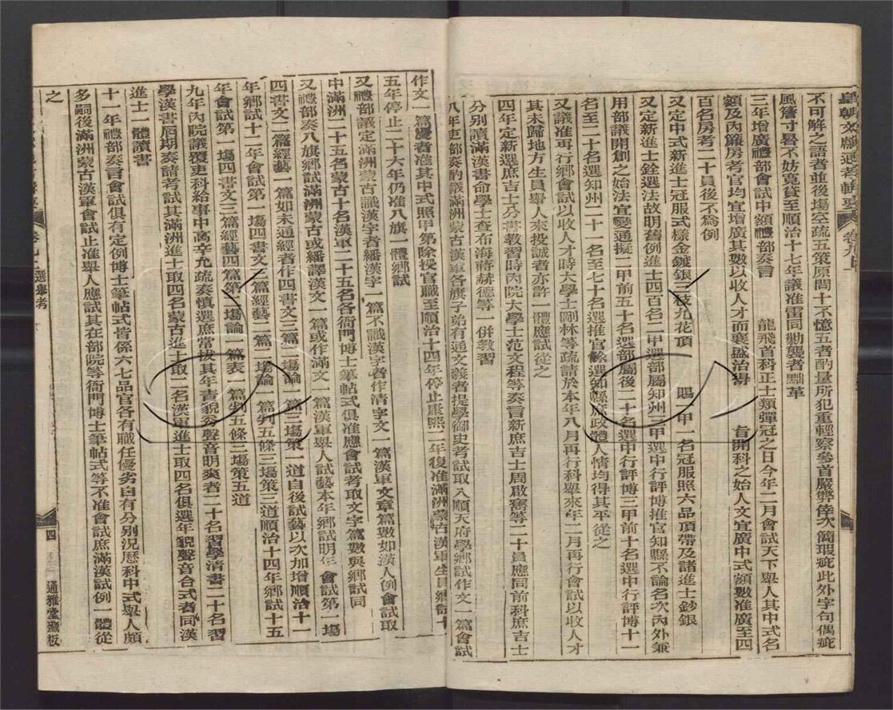 皇朝文獻通考輯要 卷九上
不可解之語者並後塲空疏五策原問十不憶五者酌量所犯重輕察參首嚴弊倖次簡瑕疵此外字句偶疵
風簷寸晷不妨寬貸至順治十七年議准雷同勦襲者黜革
三年增廣禮部會試中額禮部奏言 龍飛首科正士類彈冠之日今年二月會試天下舉人其中式名
額及內簾房考官均宜增廣其數以收人才而襄盛治得 旨開科之始人文宜廣中式額數准廣至四
百名房考二十員後不爲例
又定中式新進士冠服式樣金鍍銀三枝九花頂 賜一甲一名冠服照六品頂帶及諸進士鈔銀
又定新進士銓選法故明舊例進士四百名二甲選部屬知州三甲選中行評博推官知縣不論名次內外兼
用部議開創之始法宜變通擬二甲前五十名選部屬後二十名選中行評博三甲前十名選中行評博十一
名至二十名選知州二十一名至七十名選推官餘選知縣庶政體人情均得其平從之
又議准再行鄉會試以收人才時大學士剛林等疏請於本年八月再行科舉來年二月再行會試以收人才
其未歸地方生員舉人來投誠者亦許一體應試從之
四年定新選庶吉士分書教習時內院大學士范文程等奏言新庶吉士周啟寯等二十員應同前科庶吉士
分別讀滿漢書命學士查布海蔣赫德等一併教習
八年吏部奏酌議滿洲蒙古漢軍各旗子弟有通文義者提學御史考試取入順天府學鄉試作文一篇會試
作文二篇優者准其中式照甲第除授官職至順治十四年停止康熙二年復准滿洲蒙古漢軍生員鄉試十
五年停止二十六年仍准八旗一體鄉試
又禮部議定滿洲蒙古識漢字者繙漢字一篇不識漢字者作清字文一篇漢軍文章篇數如漢人例會試取
中滿洲二十五名蒙古十名漢軍二十五名各衙門博士筆帖式俱准應會試者取文字篇數與鄉試同
又禮部奏八旗鄉試滿洲蒙古或繙譯漢文一篇或作滿文一篇漢軍舉人試藝本年鄉試明年會試第一塲
四書文二篇經藝一篇如未通經者作四書文三篇二塲論一篇三塲策一道自後試藝以次加增順治十一
年鄉試十二年會試第一塲四書文三篇經藝二篇二塲論一篇判五條三塲策三道順治十四年鄉試十五
年會試第一塲四書文三篇經藝四篇第二塲論一篇表一篇判五條三塲策五道
九年內院議覆吏科給事中高辛允疏奏慎選庶常拔其年青貌秀聲音明爽者二十名習學清書二十名習
學漢書屆期奏請考試其滿洲進士取四名蒙古進士取二名漢軍進士取四名俱選年貌聲音合式者同漢
進士一體讀書
十一年禮部奏言會試俱有定例博士筆帖式皆係六七品官各有職任優劣自有分別況歷科中式舉人頗
多嗣後滿洲蒙古漢軍會試止准舉人應試其在部院等衙門博士筆帖式等不准會試庶滿漢試例一體從
之
卷九上 選舉考
四
通雅堂濬板